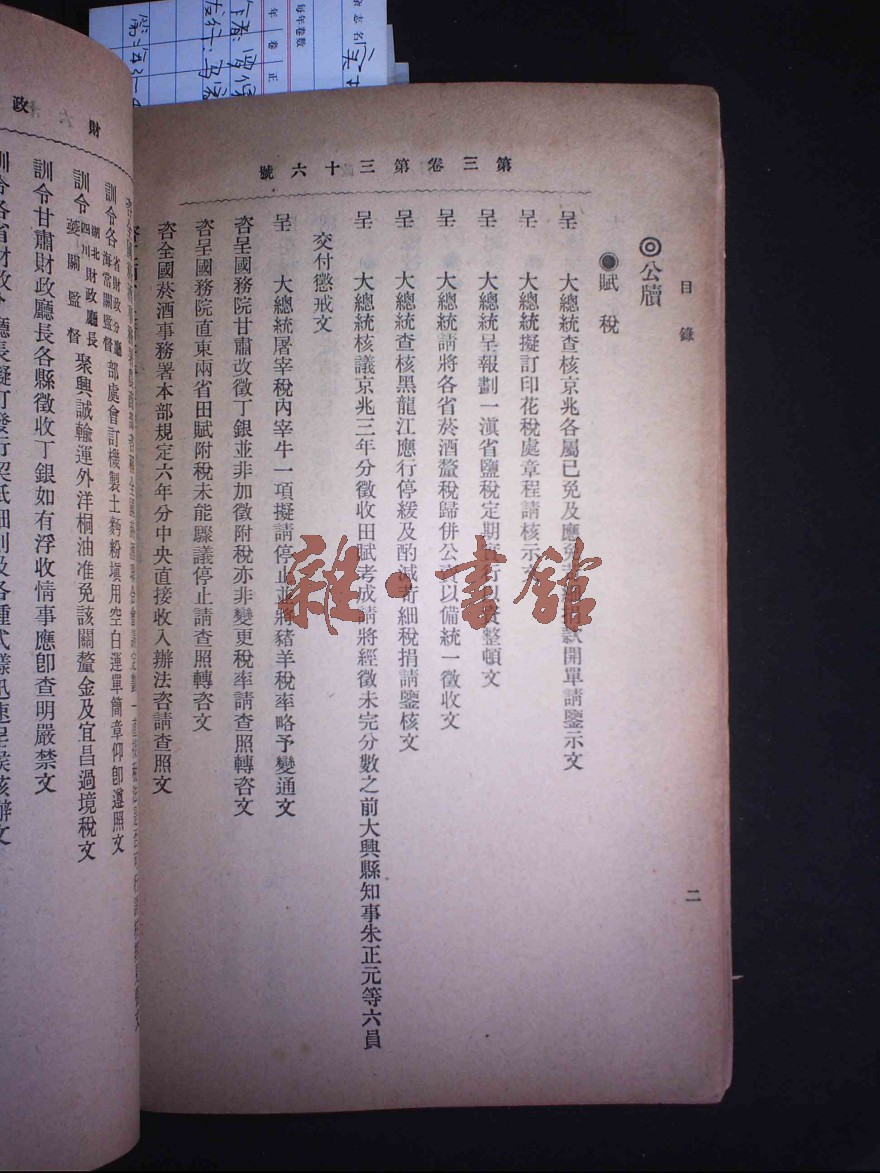 目錄
二
◎公牘
◉賦稅
第三卷第三十六號
呈　大總統查核京兆各屬已免及應免捐款開單請鑒示文
呈　大總統擬訂印花稅處章程請核示文
呈　大總統呈報劃一滇省鹽稅定期以整頓文
呈　大總統請將各省菸酒釐稅歸併公賣以備統一徵收文
呈　大總統查核黑龍江應行停緩及酌減苛細稅捐請鑒核文
呈　大總統核議京兆三年分徵收田賦考成請將經徵未完分數之前大興縣知事朱正元等六員
交付懲戒文
呈　大總統屠宰稅內宰牛一項擬請停止並將豬羊稅率略予變通文
咨呈國務院甘肅改徵丁銀並非加徵附稅亦非變更稅率請查照轉咨文
咨呈國務院直東兩省田賦附稅未能驟議停止請查照轉咨文
咨全國菸酒事務署本部規定六年分中央直接收入辦法咨請查照文
訓令各省財政分廳海常關監督部處會訂機製土麪粉填用空白運單簡章仰卽遵照文
訓令湖北四川財政廳長夔關監督聚興誠輸運外洋桐油准免該關釐金及宜昌過境稅文
訓令甘肅財政廳長各縣徵收丁銀如有浮收情事應卽查明嚴禁文
訓令各省財政分廳長擬訂發行契紙細則及各種式樣迅速呈候核辦文
財政
雜·書館
雜志名
每年卷數
年卷